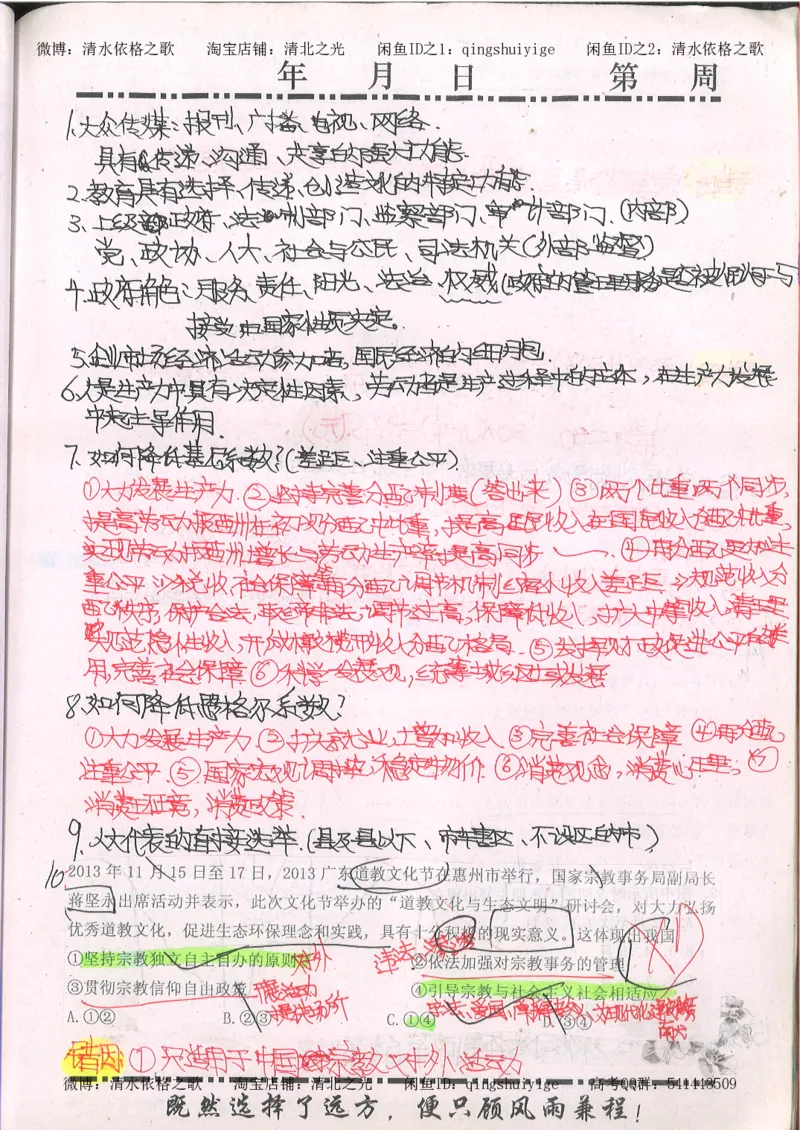 微博：清水依格之歌 淘宝店铺：清北之光 闲鱼ID之1：qingshuiyige 闲鱼ID之2：清水依格之歌
年 月 日 第 周
1.大众传媒：报刊、广播、电视、网络.
具有传递、沟通、共享的强大功能.
2.教育具有选择、传递、创造文化的特定功能.
3、上级政府、法制部门、监察部门、审计部门.(内部)
党、政协、人大、社会与公民、司法机关(外部监督)
4.政府角色：服务、责任、阳光、法治、权威(政府的管理服务是否被认同与
接受 由国家性质决定。
5.企业市场经济主要参加者,国民经济的细胞.
6.人是生产力中具有决定性因素,劳动者是生产过程中的主体,在生产力发展
中起主导作用.
7.如何降低基尼系数?(差距、注重公平)
①大力发展生产力.②坚持完善分配制度(答出来)③两个比重两个同步,
提高劳动报酬在初次分配中比重,提高居民收入在国民收入分配中比重,
实现劳动报酬增长与劳动生产率提高同步 .④再分配更加注
重公平 以税收、社会保障等再分配调节机制 缩小收入差距 规范收入分
配秩序,保护合法,取缔非法,调节过高,保障低收入,扩大中等收入,清理
规范隐性收入,形成橄榄形收入分配格局.⑤发挥财政促进公平作
用,完善社会保障⑥科学发展观,统筹城乡区域发展
8.如何降低恩格尔系数?
①大力发展生产力②扩大就业,增加收入③完善社会保障④再分配,
注重公平⑤国家宏观调控,稳定物价⑥消费观念,消费心理;⑦
消费政策.
9.人大代表的直接选举.(县及县以下、市辖区、不设区的市)
10 2013 年 11 月 15 日至 17 日，2013 广东道教文化节在惠州市举行，国家宗教事务局副局长
蒋坚永出席活动并表示，此次文化节举办的“道教文化与生态文明”研讨会，对大力弘扬
优秀道教文化，促进生态环保理念和实践，具有十分积极的现实意义。这体现出我国
①坚持宗教独立自主自办的原则 对外 违法 ②依法加强对宗教事务的管理
③贯彻宗教信仰自由政策 ④引导宗教与社会主义社会相适应
A.①② B.②③ C.①④ D.③④
错因①只适用于中国宗教对外活动
微博：清水依格之歌 淘宝店铺：清北之光 闲鱼ID：qingshuiyige 高考QQ群：541443509
既然选择了远方，便只顾风雨兼程！